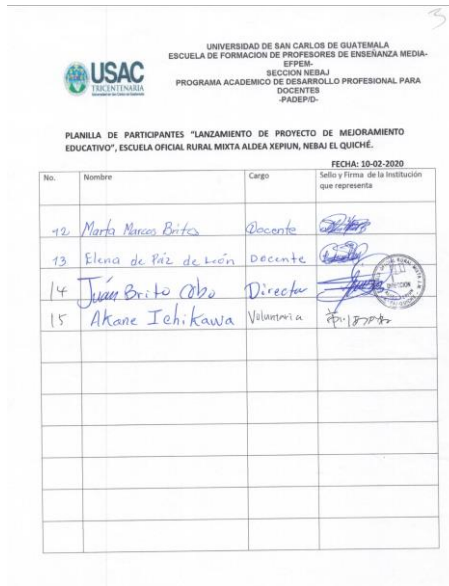 3
UNIVERSIDAD DE SAN CARLOS DE GUATEMALA
ESCUELA DE FORMACION DE PROFESORES DE ENSEÑANZA MEDIA-
EFPEM-
SECCION NEBAJ
PROGRAMA ACADEMICO DE DESARROLLO PROFESIONAL PARA
DOCENTES
-PADEP/D-
USAC
TRICENTENARIA
Universidad de San Carlos de Guatemala
PLANILLA DE PARTICIPANTES "LANZAMIENTO DE PROYECTO DE MEJORAMIENTO
EDUCATIVO", ESCUELA OFICIAL RURAL MIXTA ALDEA XEPIUN, NEBAJ EL QUICHÉ.
FECHA: 10-02-2020
No. Nombre Cargo Sello y Firma de la Institución
que representa
12 Marta Marcos Brito Docente
13 Elena de Paz de León Docente
14 Juán Brito Cobo Director
DIRECCION
15 Akane Ichikawa Voluntaria